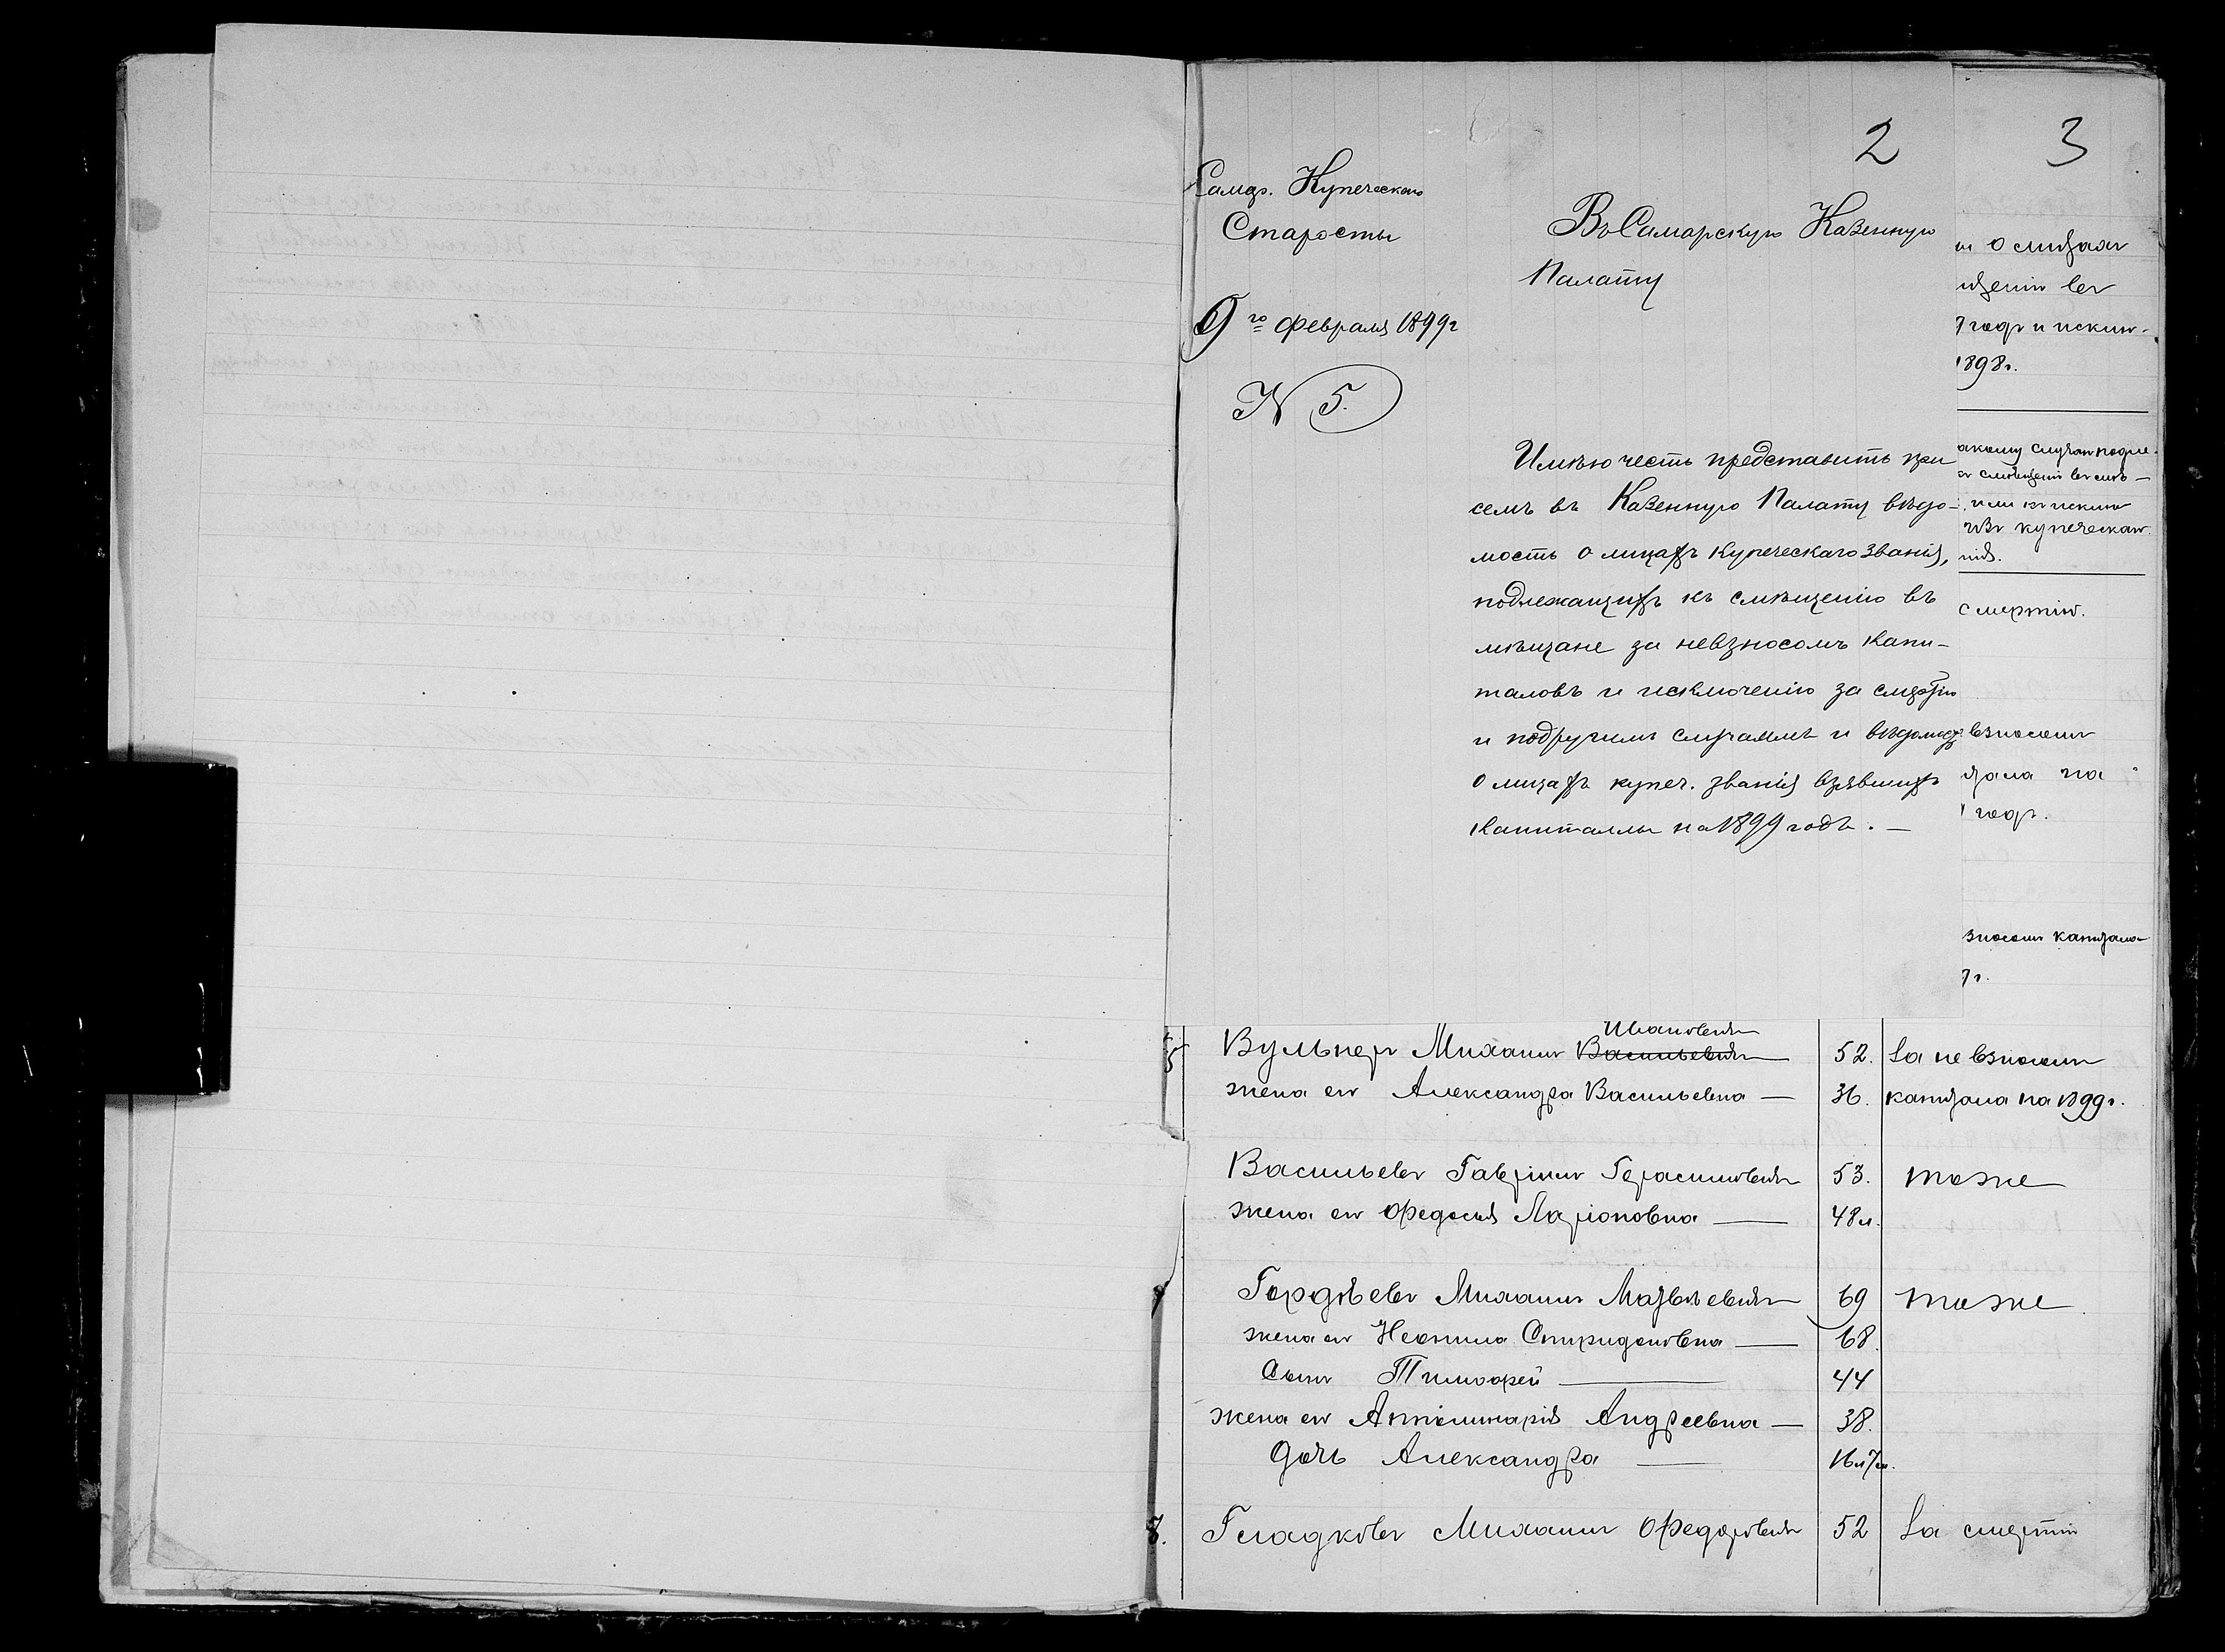 2
3
Самар. Купеческаго
Старосты
9го февраля 1899г
N 5.
Въ Самарскую Казенную
Палату
Имѣю честь представить при
семъ въ Казенную Палату вѣдо-
мость о лицахъ купеческаго званія,
подлежащихъ къ смѣщенію въ
мѣщане за невзносомъ капи-
таловъ и исключенію за смертію
и по другимъ случаямъ и вѣдомость
о лицахъ купеч. званія взявшихъ
капиталы на 1899 годъ. —
о лицахъ
щенію въ
годъ и исклю-
1898г.
акому случаю подле-
смѣщенію въ мѣ-
или исклю
изъ купеческаго
нія.
смертію.
взносомъ
тала на
годъ.
зносомъ капитала
7г.
5 Вульперъ Михаилъ Васильевичъ Ивановичъ 52. За не взносомъ
жена его Александра Васильевна — 36. капитала на 1899г.
Васильевъ Гавріилъ Герасимовичъ 53. тоже
жена его Федосья Ларіоновна — 48 л.
7 Гордѣевъ Михаилъ Матвѣевичъ 69 тоже
жена его Неонила Спиридоновна — 68.
Сынъ Тимофей — 44
жена его Апполинарія Андреевна — 38.
Дочь Александра — 16 л 7 м.
8. Гладковъ Михаилъ Федоровичъ 52 За смертію